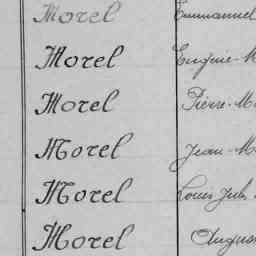 Morel Emmanuel
Morel Eugénie-M
Morel Pierre-M
Morel Jean-M
Morel Louis Jules
Morel August